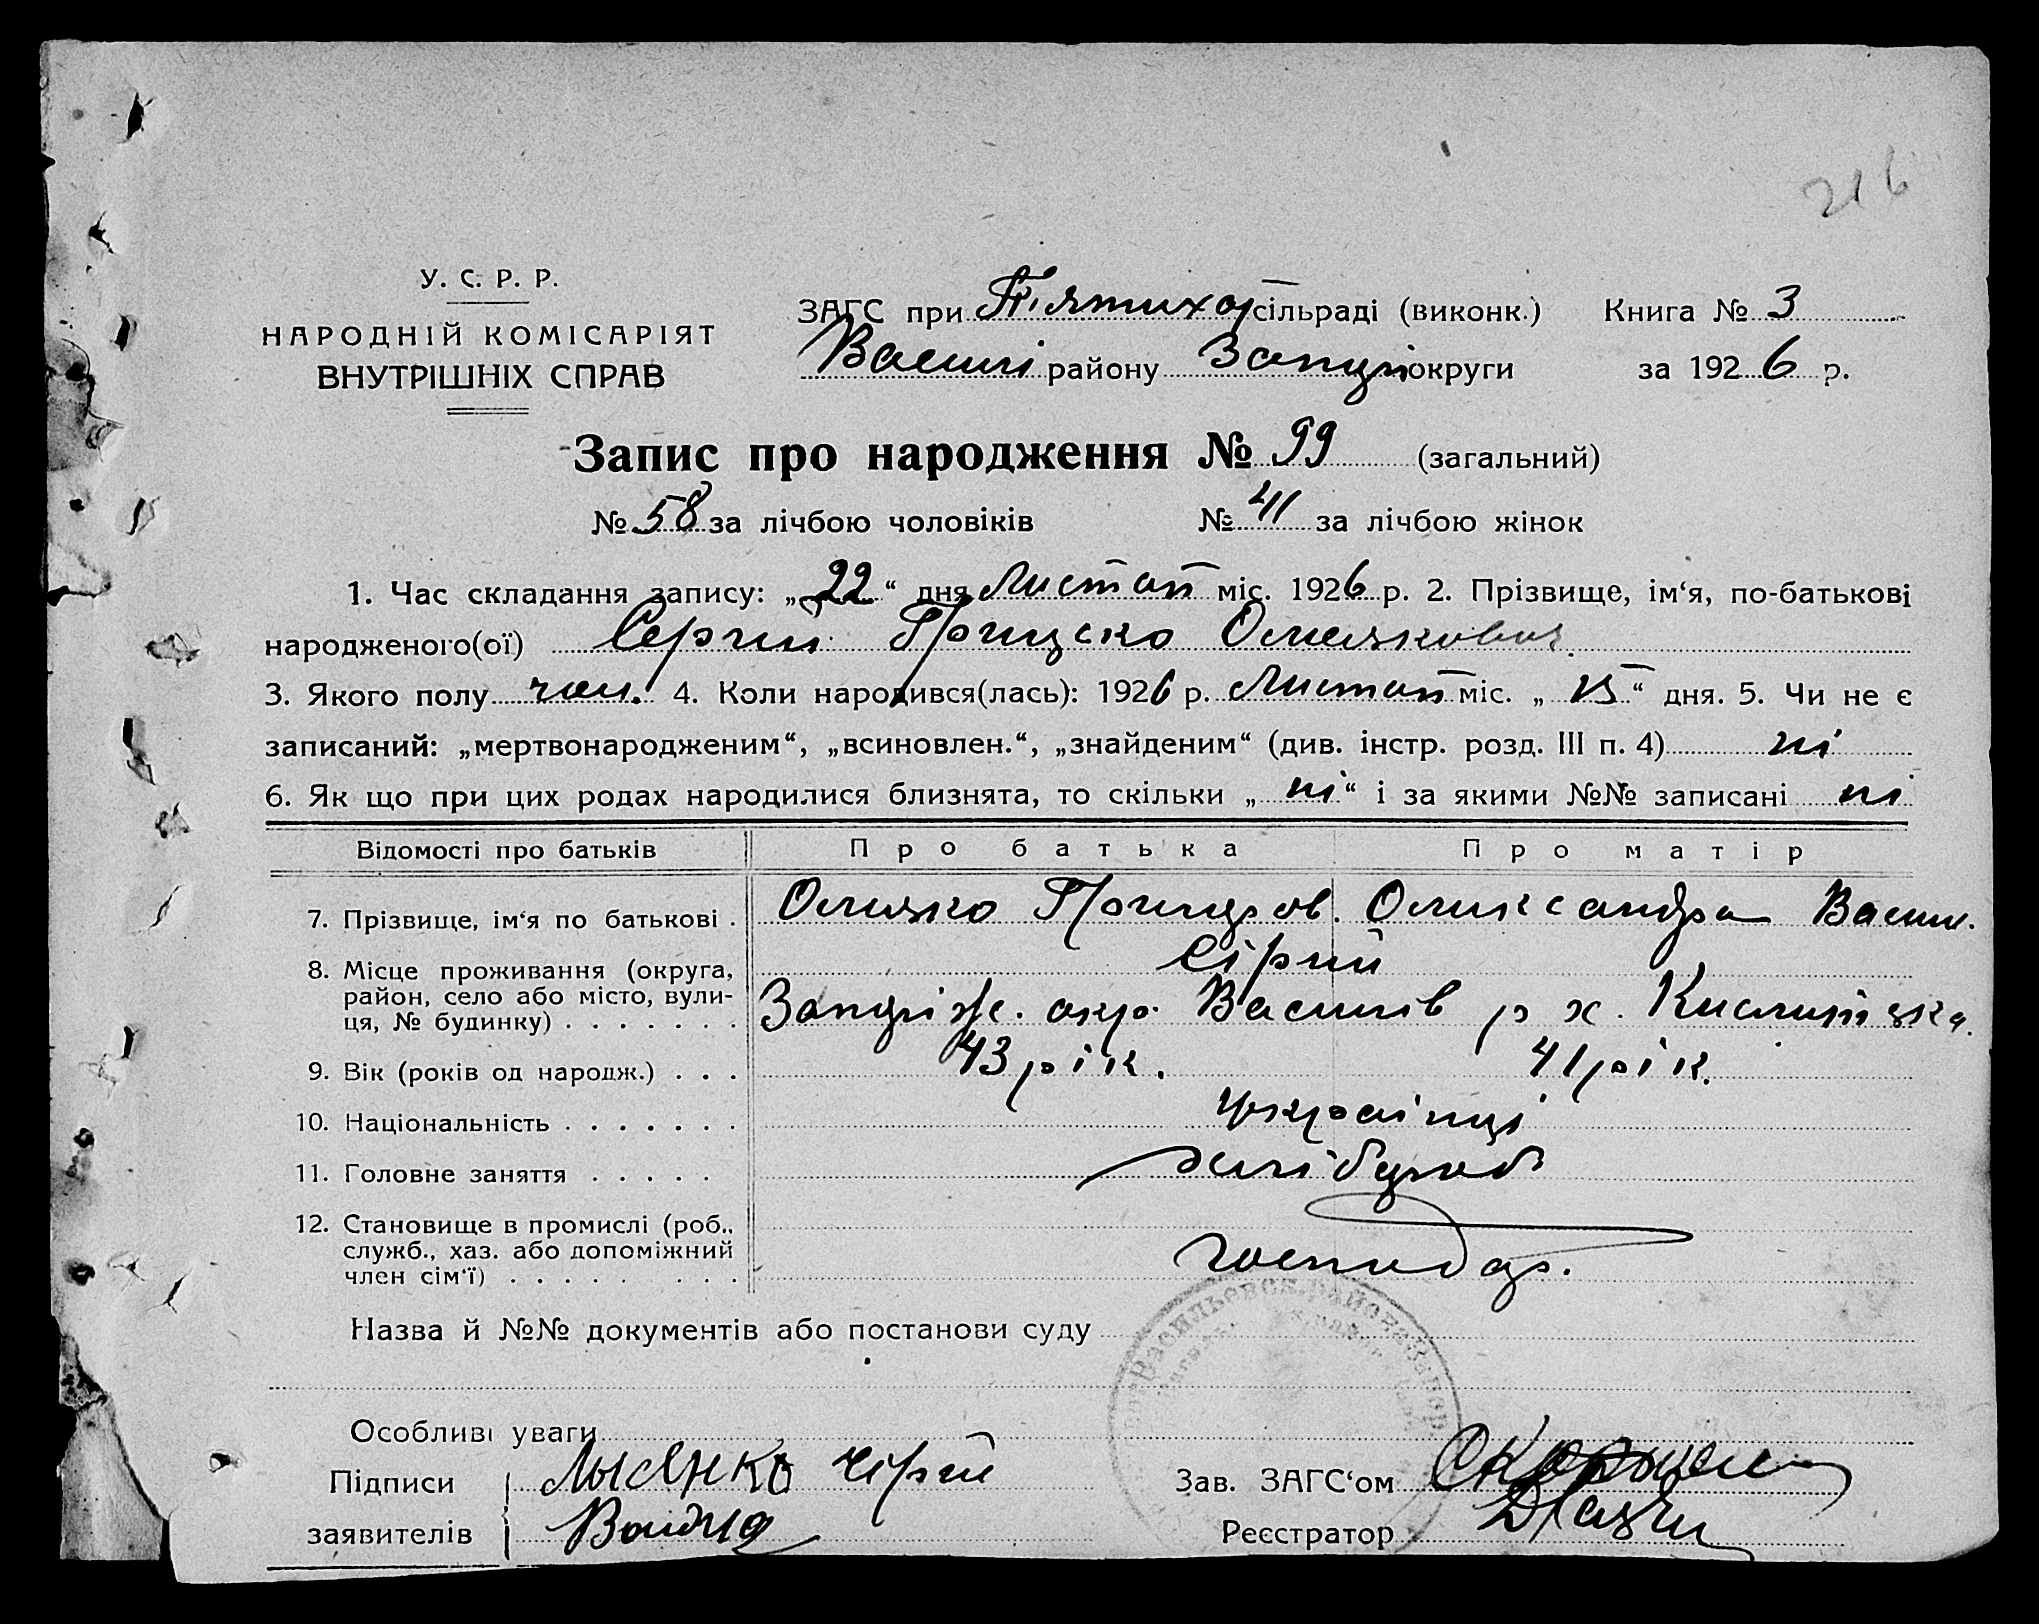 216
У. С. Р. Р.
НАРОДНІЙ КОМІСАРІЯТ
ВНУТРІШНІХ СПРАВ
ЗАГС при Пятихат сільраді (виконк.) Книга № 3
Василі району Запорі округи за 1926 р.
Запис про народження № 99 (загальний)
№ 58 за лічбою чоловіків № 41 за лічбою жінок
1. Час складання запису: „22“ дня Листоп міс. 1926 р. 2. Прізвище, ім‘я, по-батькові
народженого(ої) Сергий Грицско Омелякович
3. Якого полу чол. 4. Коли народився(лась): 1926 р. Листоп міс. „15“ дня. 5. Чи не є
записаний: „мертвонародженим“, „всиновлен.“, „знайденим“ (див. інстр. розд. III п. 4) ні
6. Як що при цих родах народилися близнята, то скільки „ні“ і за якими №№ записані ні
Відомості про батьків Про батька Про матір
7. Прізвище, ім‘я по батькові . Омелько Григоров. Олександра Васил.
Сірий
8. Місце проживання (округа,
район, село або місто, вули-
ця, № будинку) . . . . . . . Запоріж. окр. Василів р х.
9. Вік (років од народж.) . . . 43 рік. 41 рік.
10. Національність . . . . . . . українці
11. Головне заняття . . . . . хлібороб
12. Становище в промислі (роб.,
служб., хаз. або допоміжний
член сім‘ї) . . . . . . . . господар.
Назва й №№ документів або постанови суду
Васильевск. район Запор
Особливі уваги
Підписи Лысянко
заявителів
Зав. ЗАГС‘ом
Реєстратор